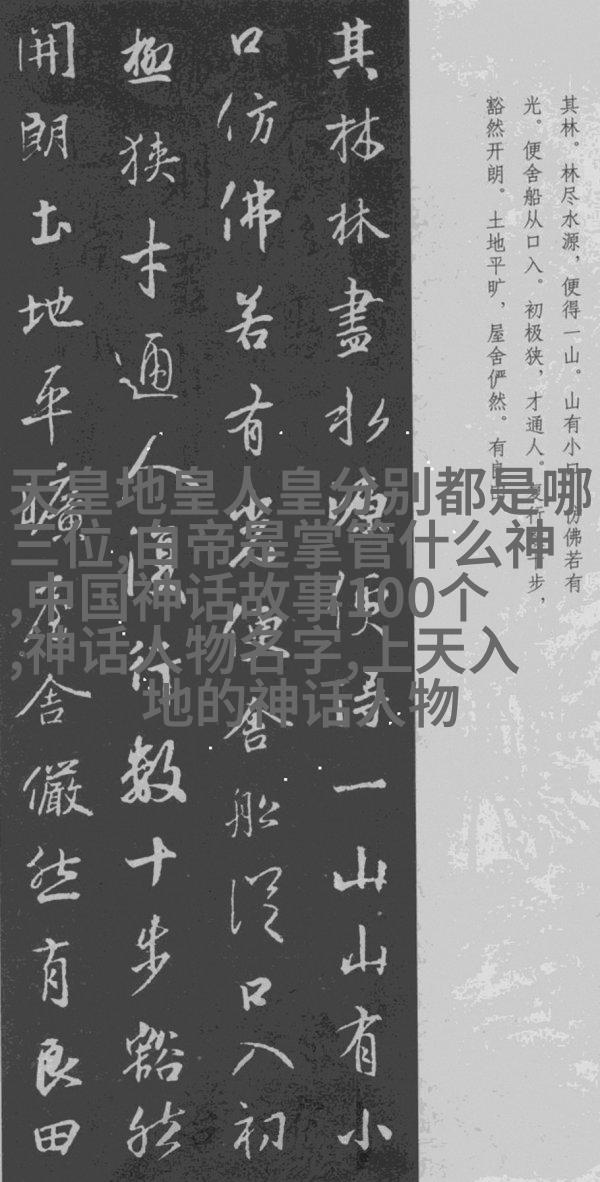 其林。林尽水源，便得一山。山有小口，仿佛若有
光。便舍船从口入。初极狭，才通人。复行数十步，
豁然开朗。土地平旷，屋舍俨然。有良田
其林林盡水源便得一山山有小
口仿佛若有光便舍船從口入初
極狹才通人復行數十步豁然
開朗土地平曠屋舍儼然有良田
天皇地皇人皇分别都是哪
三位,白帝是掌管什么神
,中国神话故事100个
,神话人物名字,上天入
地的神话人物